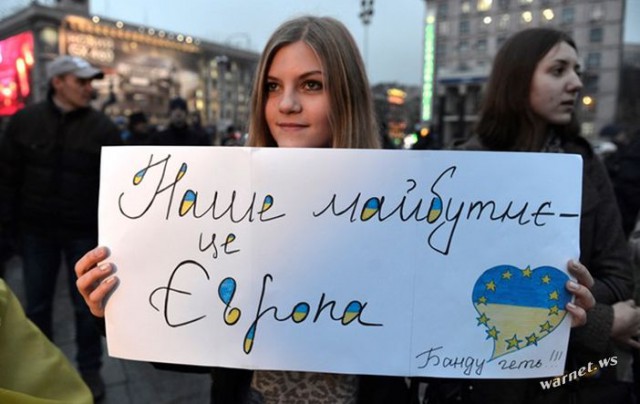 Наше майбутнє -
це
Європа
Банду геть!!!
warnet.ws